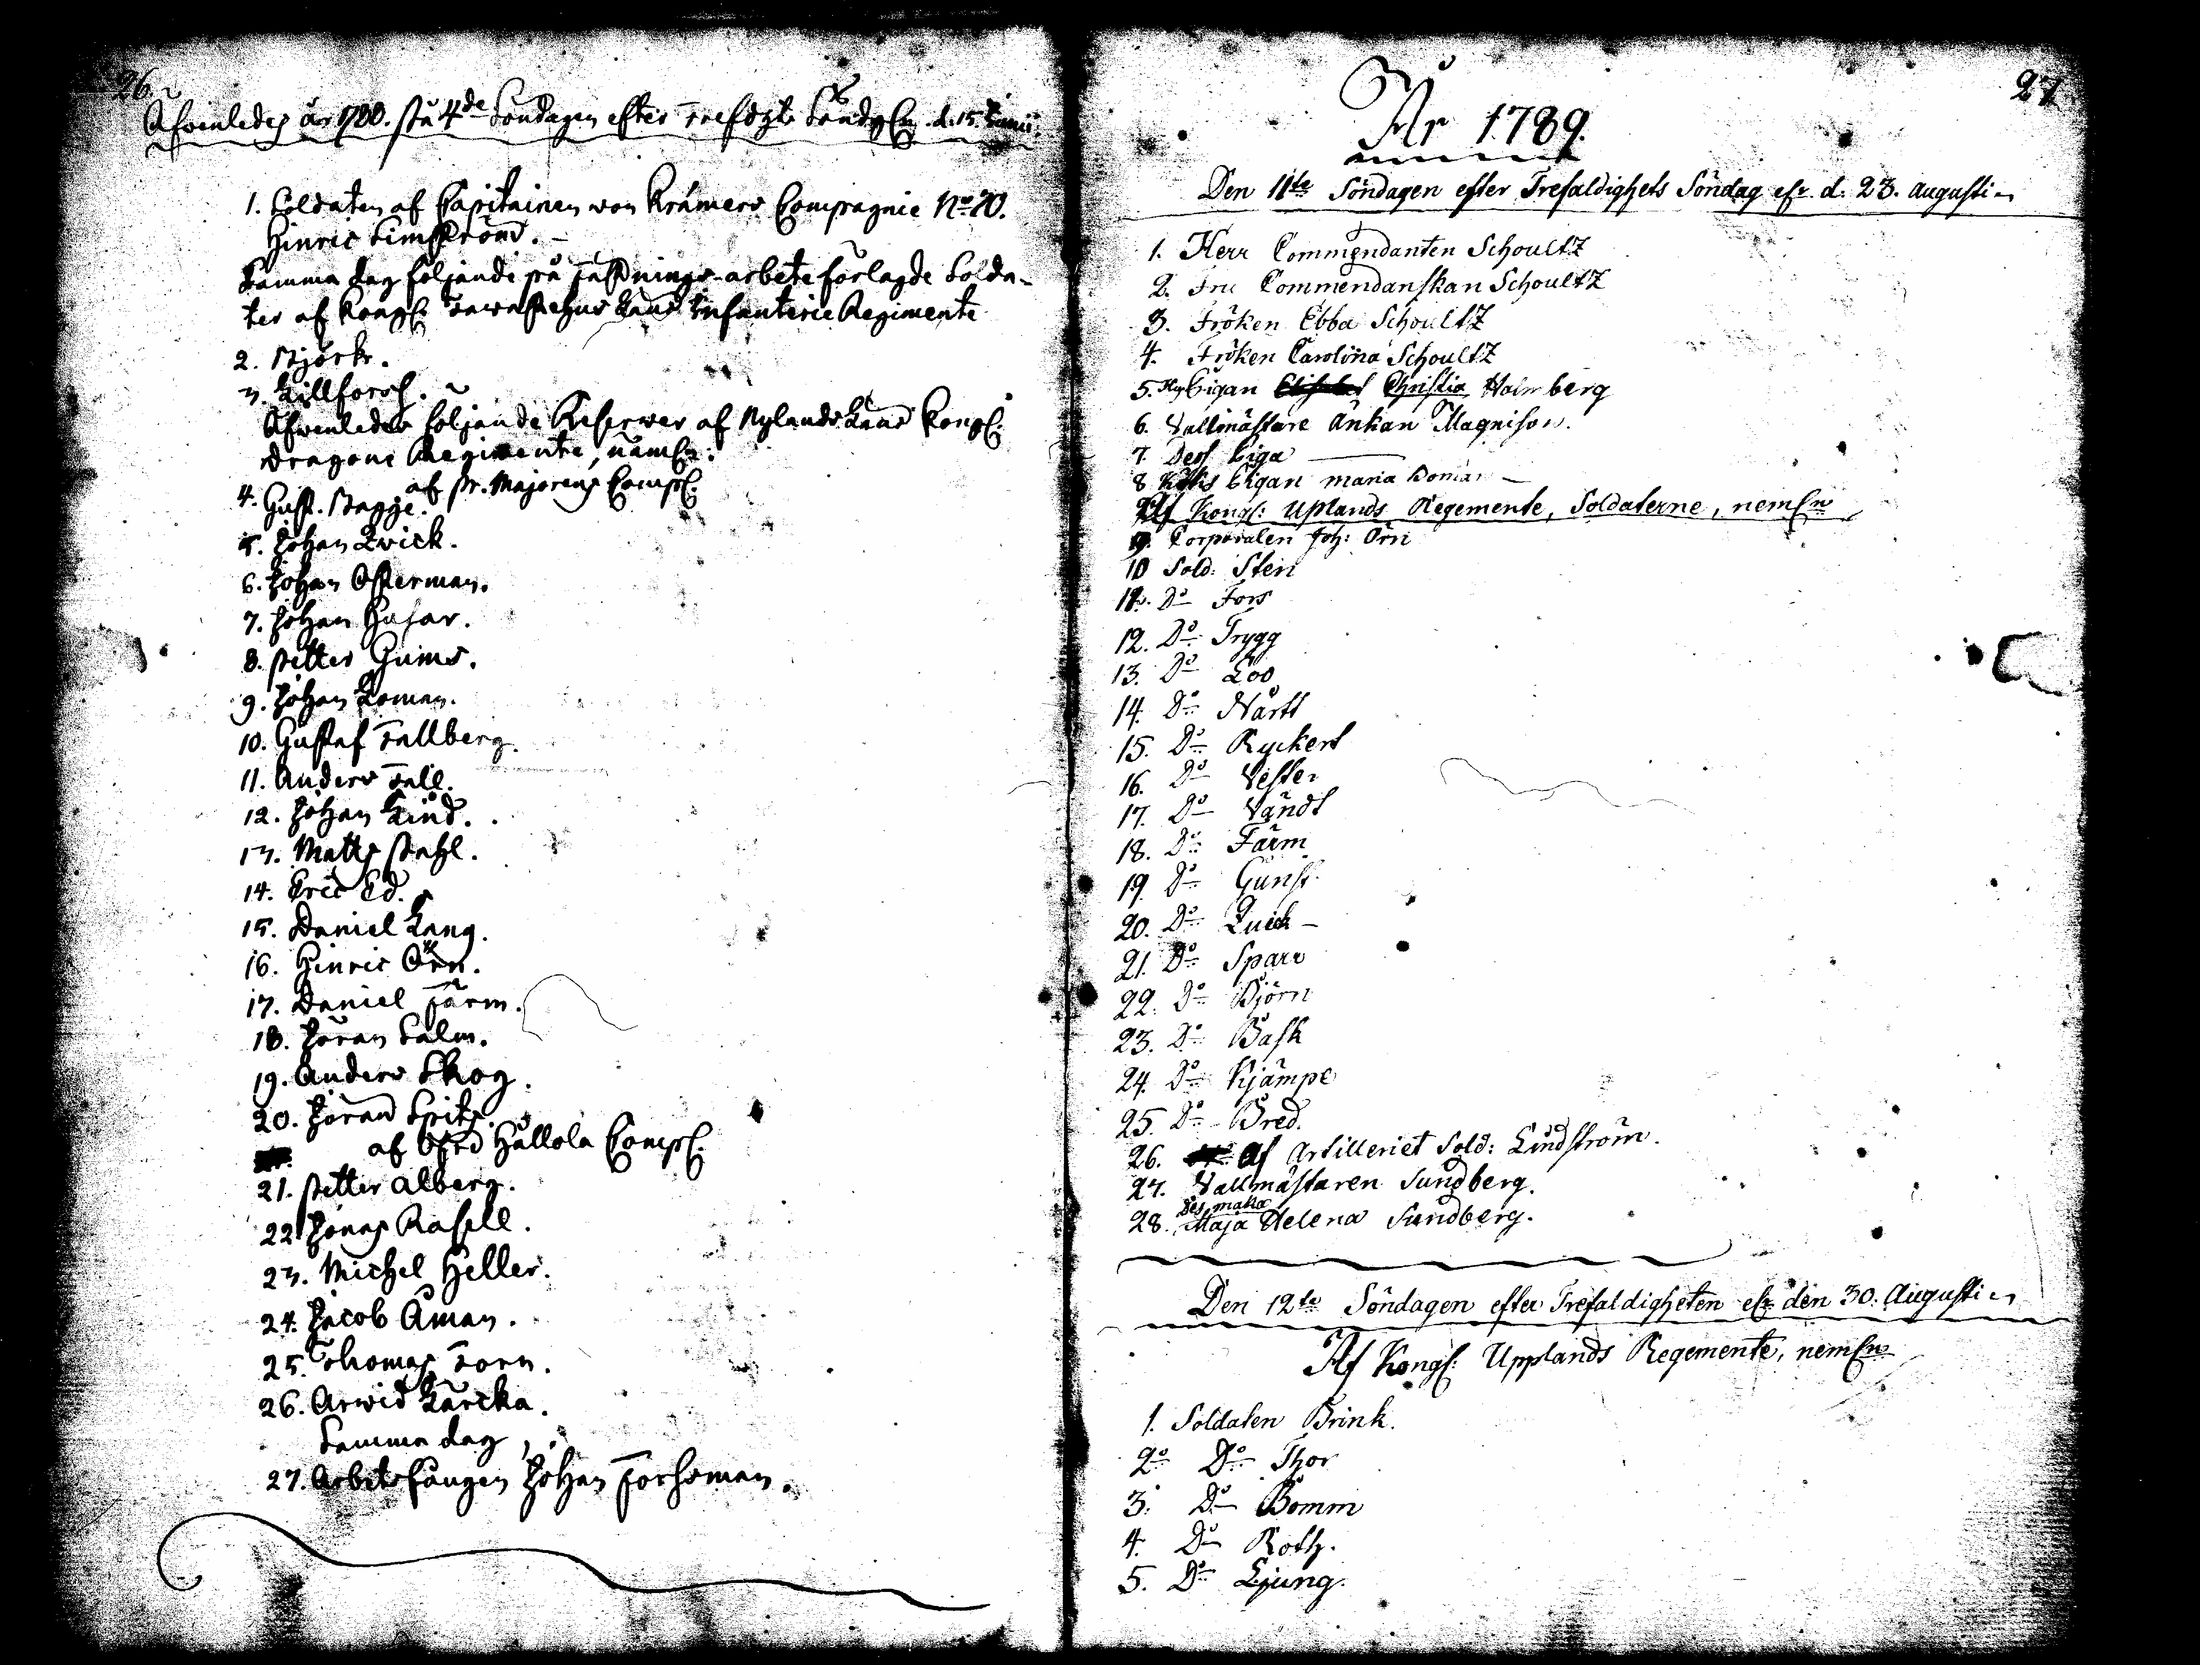 26.
Afwenledes år 1788. på 4de Söndagen efter Trefdgts Söndg En. d. 15. Junii.
1. Soldaten af Capitainen von Krämers Compagnie No 70.
Hinric Limström.
Samma dag följande på fästnings-arbete förlagde Solda-
ter af Kongl: Tawastehus Läns Infanterie Regimente
2. Björk.
3. Killfors.
Afwenledes följande Reserver af Nylands Läns Kongl:
Dragone Regimente, näml:
af pr. Majorens Comp:
4. Gust. Bagge.
5. Johan Qvick.
6. Johan Osterman.
7. Johan Husar.
8. Petter Grims.
9. Johan Loman.
10. Gustaf Fallberg.
11. Anders Fall.
12. Johan Lind.
13. Matts Stahl.
14. Eric Ed.
15. Daniel Lang.
16. Hinric Örn.
17. Daniel Färm.
18. Jöran Salm.
19. Anders Skog.
20. Jöran Spits.
af Hållola Comp:
21. Petter Alberg.
22. Jonas Rasell.
23. Michel Heller.
24. Jacob Åman.
25. Thomas Torn.
26. Arwid Lärcka.
Samma dag,
27. Arbetsfången Johan Forsman.
27
År 1789.
Den 11te Söndagen efter Trefaldighets Söndag d. 23. augusti
1. Herr Commendanten Schoultz
2. Fru Commendanskan Schoultz
3. Fröken Ebba Schoultz
4. Fröken Carolina Schoultz
5. Pigan Christia Holmberg
6. Vallmästare Änkan Magnison.
7 Dess Piga
8 Pigan maria
Af Kongl: Uplands Regemente, Soldaterne, neml
9. Corporalen Joh: Örn
10 Sold: Sten
11. Do Fors
12. Do Trygg
13. Do Loo
14. Do Nårtt
15. Do Ryckert
16. Do Vester
17. Do Vändt
18. Do Färm
19. Do Gunst
20. Do Quick
21. Do Sparr
22. Do Björn
23. Do Bask
24. Do Kjämpe
25. Do Bred.
26. Af Artilleriet Sold: Lindström.
27. Vallmästaren Sundberg.
28. Des maka Maja Helena Sundberg.
Den 12te Söndagen efter Trefaldigheten den 30. Augusti
Af Kongl: Upplands Regemente, neml
1. Soldaten Brink.
2. Do Thor
3. Do Bomm
4. Do Roth.
5. Do Ljung.